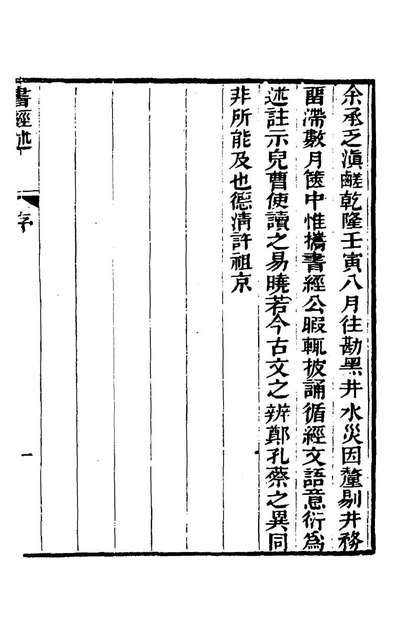 余承乏滇鹾乾隆壬寅八月往勘黑井水災因釐剔井務
畱滯數月篋中惟攜書經公暇輒披誦循經文語意衍爲
述註示兒曹使讀之易曉若今古文之辨鄭孔蔡之異同
非所能及也德清許祖京
書經述
序
一